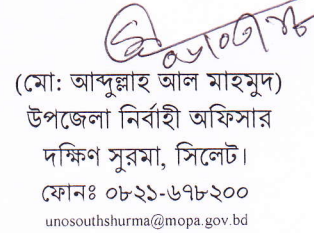 ০৮/০৫/২৪
(মো: আব্দুল্লাহ আল মাহমুদ)
উপজেলা নির্বাহী অফিসার
দক্ষিণ সুরমা, সিলেট।
ফোনঃ ০৮২১-৬৭৮২০০
unosouthshurma@mopa.gov.bd